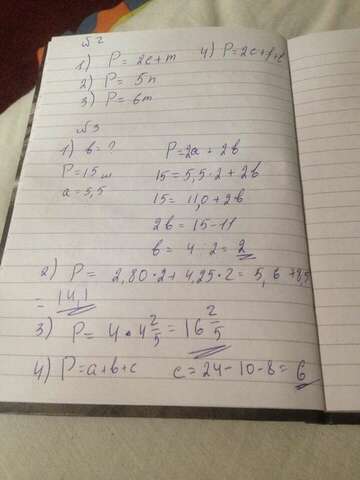 №2
1) P = 2c+m 4) P=2c+f+e
2) P = 5n
3) P = 6m
№3
1) в = ? P=2a + 2в
P=15м 15=5,5·2+2в
a=5,5 15= 11,0+2в
2в = 15-11
в = 4:2=2
2) P= 2,80·2+4,25·2=5,6+8,5
= 14,1
3) P= 4·4 2/5=16 2/5
4) P=a+в+c c=24-10-8=6